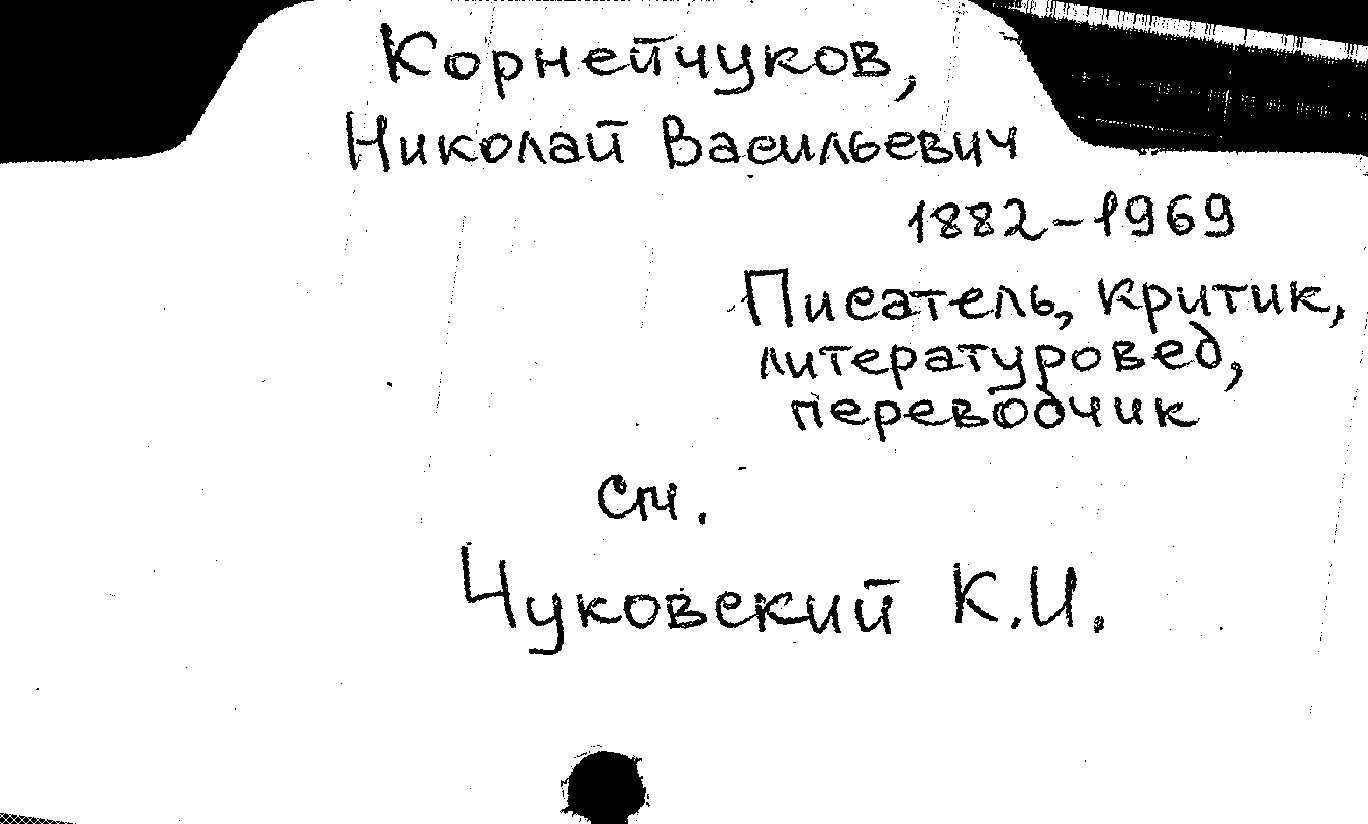 Корнейчуков,
Николай Васильевич
1882-1969
Писатель, критик,
литературовед,
переводчик
см.
Чуковский К.И.